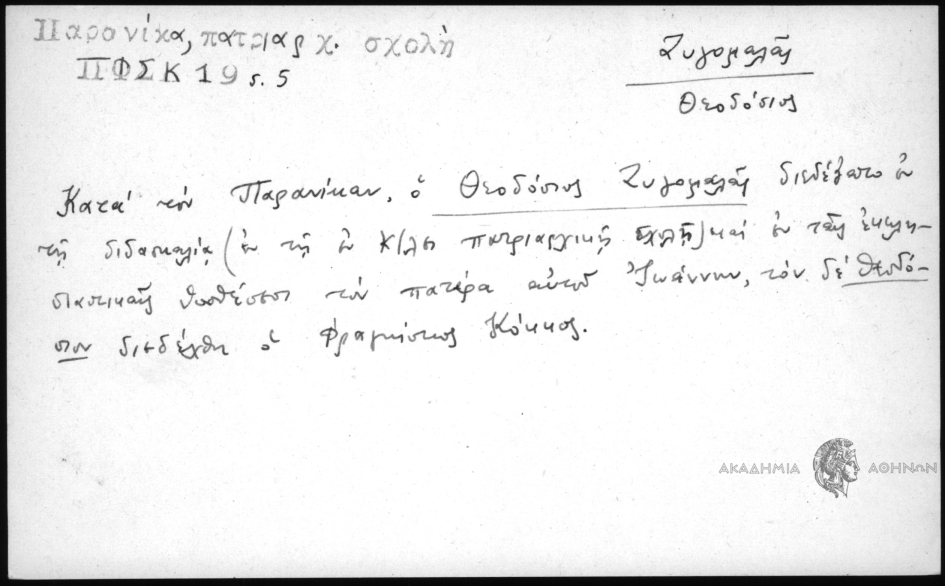 Παρονίκα, πατριαρχ. σχολὴ
ΠΦΣΚ 19 s. 5
Ζυγομαλᾶς
Θεοδόσιος
Κατὰ τὸν Παρανίκαν, ὁ Θεοδόσιος Ζυγομαλᾶς διεδέξατο ἐν
τῇ διδασκαλίᾳ (ἐν τῇ ἐν Κ/λει πατριαρχικῇ σχολῇ) καὶ ἐν ταῖς ἐκκλη-
σιαστικαῖς ὑποθέσεσι τὸν πατέρα αὐτοῦ Ἰωάννην, τὸν δὲ Θεοδό-
σιον διεδέχθη ὁ Φραγκίσκος Κόκκος.
ΑΚΑΔΗΜΙΑ ΑΘΗΝΩΝ